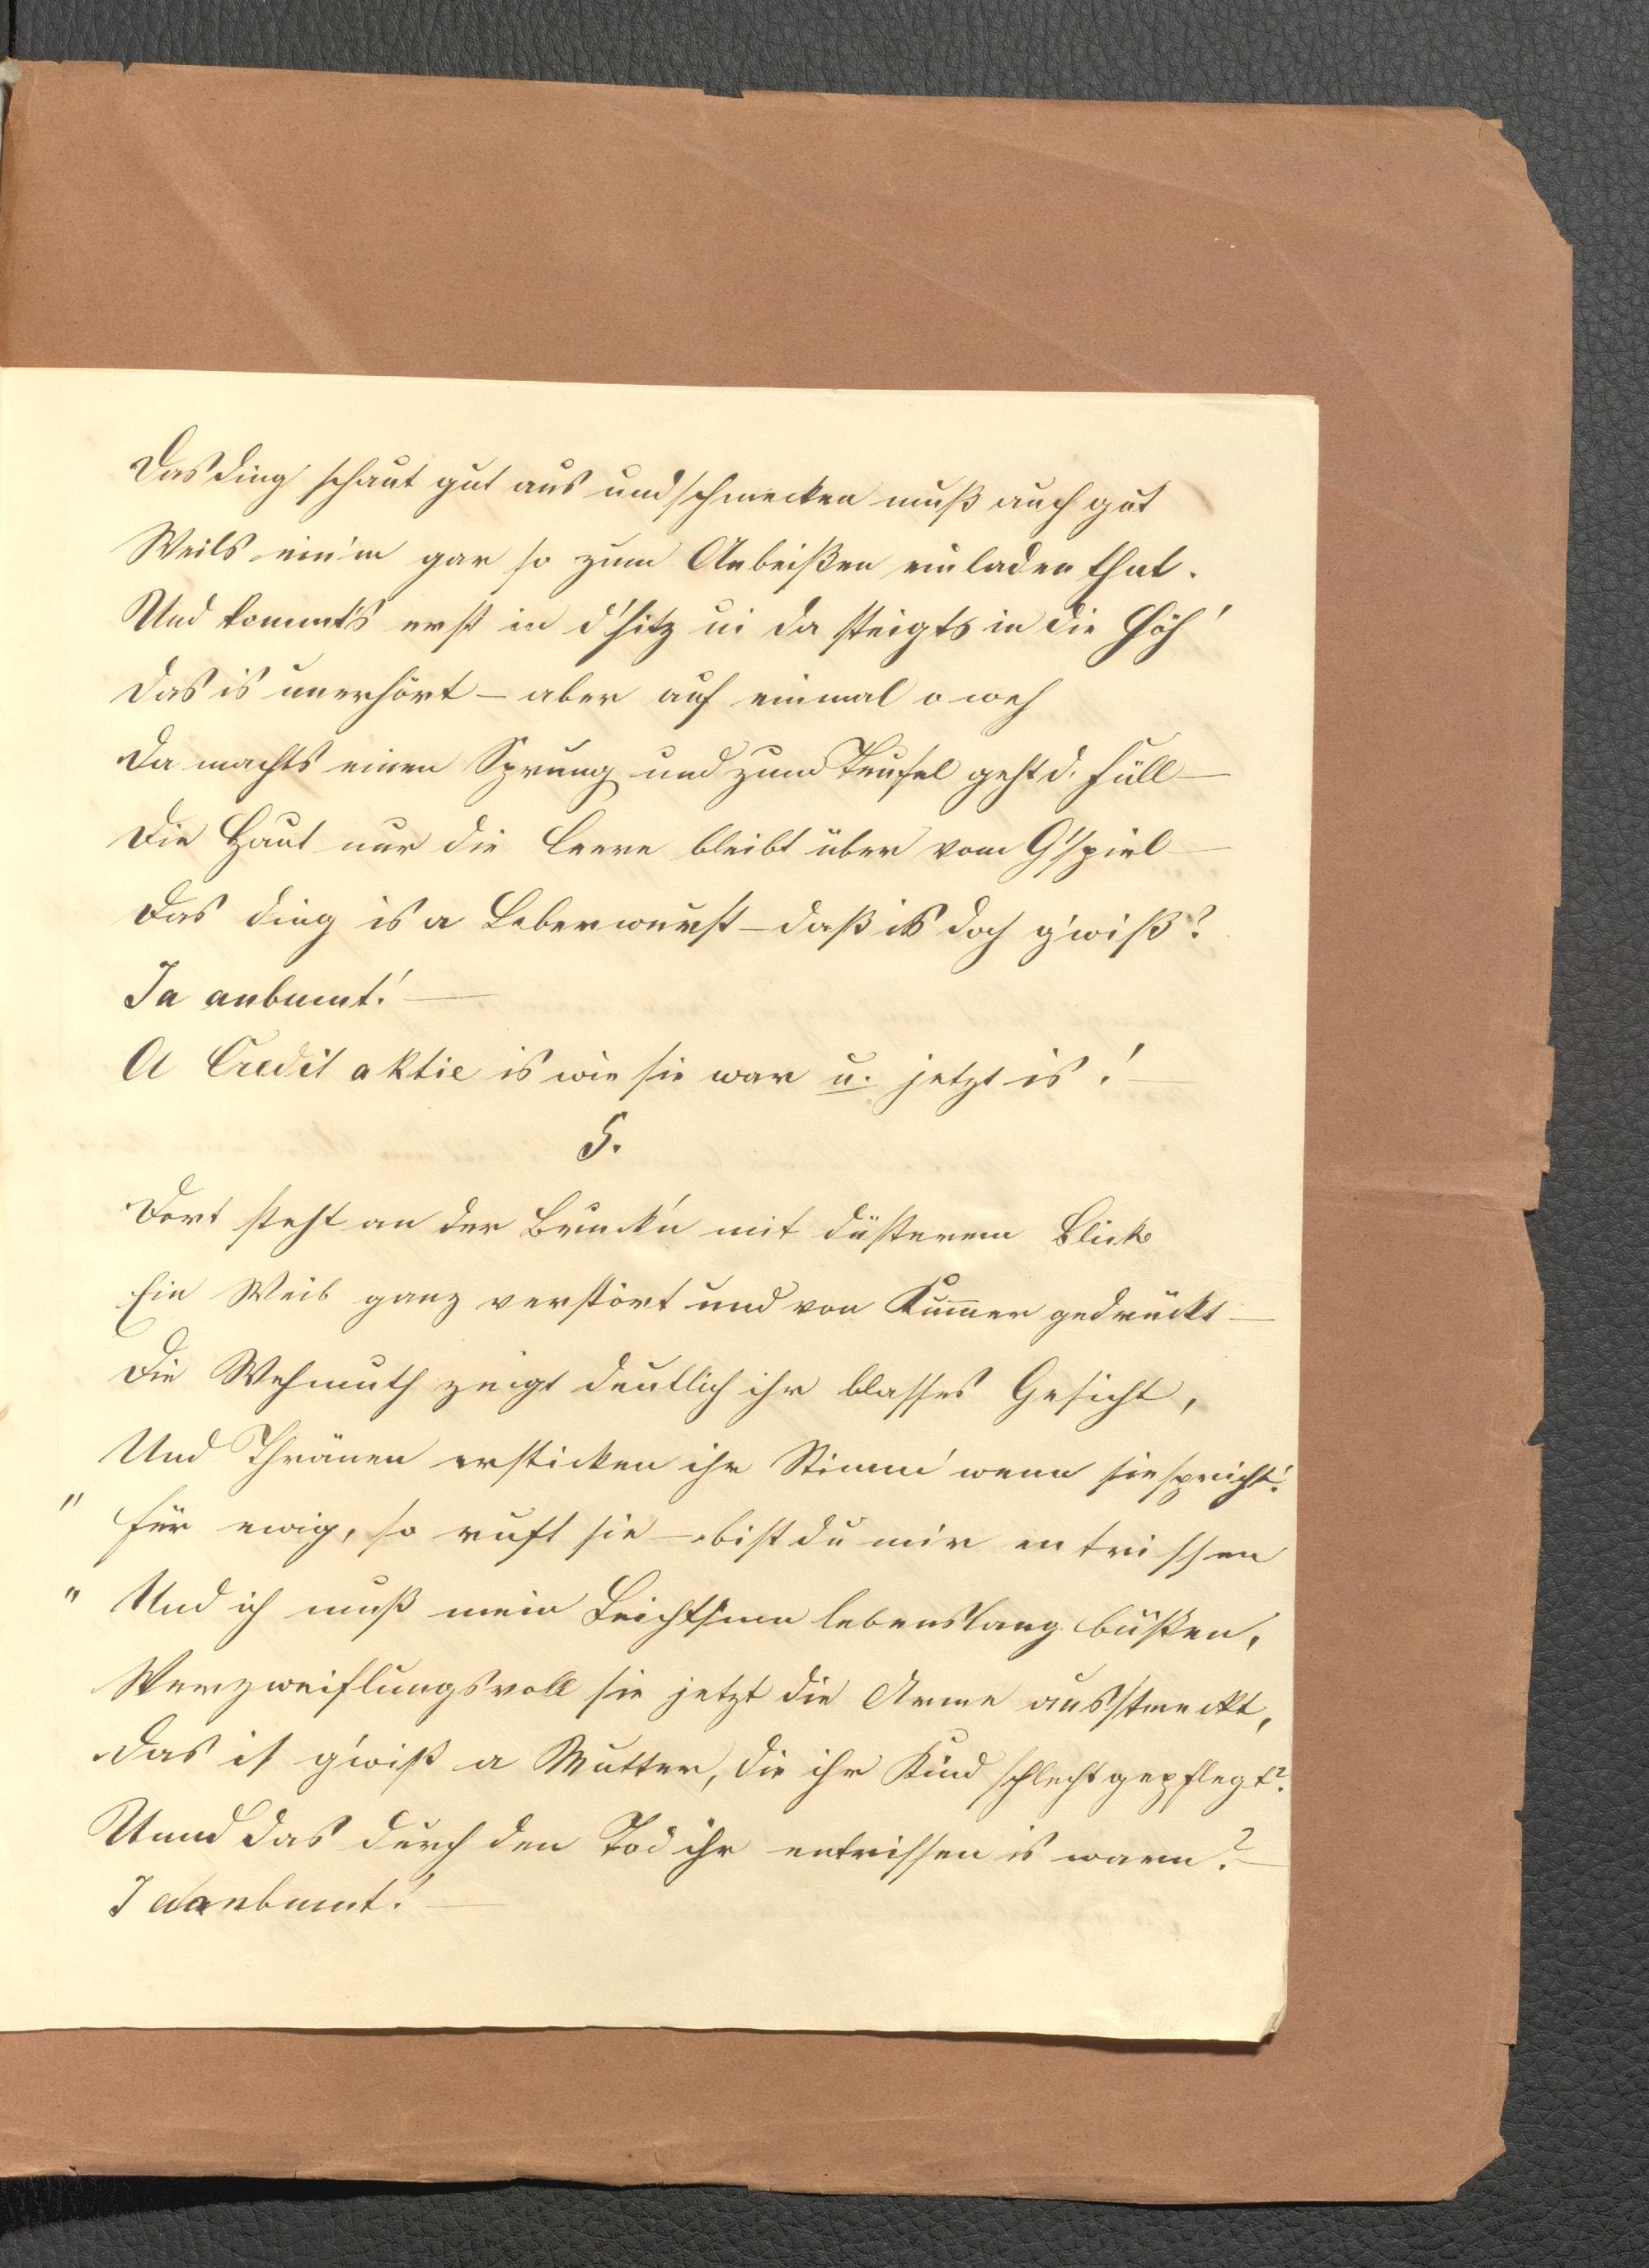 Das Ding schaut gut aus und schmecken muß auch gut
Weils ein'm gar so zum Anbeißen einladen thut.
Und kommt's erst in d'Hitz ni da steigts in die Höh'
Das is unerhört – aber auf einmal o weh
Da machts einen Sprung und zum Teufel geht d. Füll –
Die Haut nur die leere bleibt über vom G'spiel –
Das Ding is a Leberwurst – daß is doch g'wiß?
Ja anbumt! –
A Credit aktie is wie sie war u. jetzt is! –
5.
Dort steht an der Bruck'n mit düsterem Blick
Ein Weib ganz verstört und von Kummer gedrückt –
Die Wehmuth zeigt deutlich ihr blasses Gesicht,
Und Thränen ersticken ihr Stimm' wenn sie spricht!
" Für ewig, so ruft sie – bist du mir entrissen
" Und ich muß mein Leichtsinn lebenslang büßen,
Verzweiflungsvoll sie jetzt die Arme ausstreckt,
Das is g'wiß a Mutter, die ihr Kind schlecht gepflegt?
Unnd das durch den Tod ihr entrissen is warn? –
Ja anbumt! –